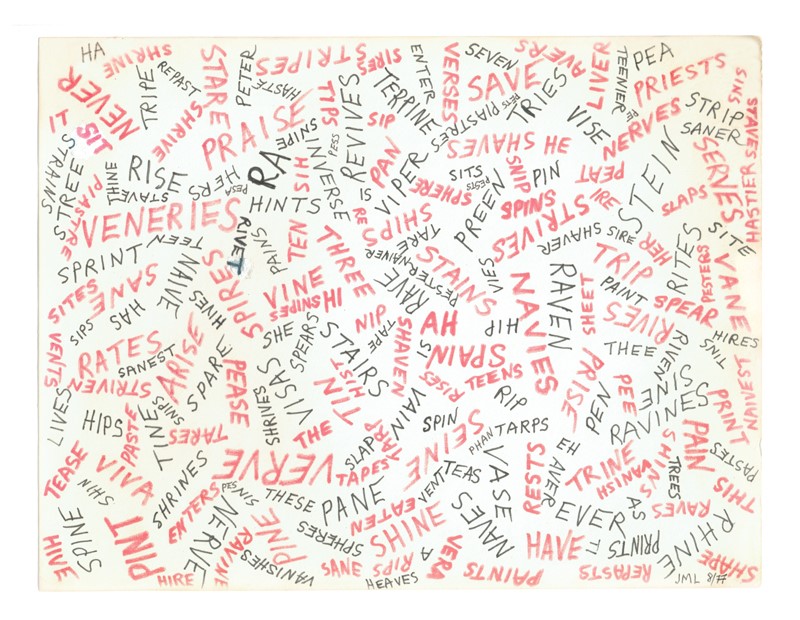 HA
SHRINE
STARE
PETER
STRIPES
SIRE
ENTER
VERSES
SEVEN
AVERS
LIVER
TEENIER
PEA
PRIESTS
SINS
NEVER
TRIPE
REPAST
HASTE
TIPS
REVIVES
TERRINE
SAVE
PIASTRES
TRIES
VISE
NERVES
STRIP
SANER
STAVES
IT
SIT
SHRIVE
PRAISE
SNIPE
SIP
PAN
SHAVES
HE
STRAINS
STREE
PIASTRE
THINE
RISE
STAVE
HERS
PESA
RA
SIH
INVERSE
PESS
VIPER
SPHERE
SITS
PESTS
SNIP
PIN
PEAT
STEIN
SERVES
HASTIER
VENERIES
RIVET
HINTS
IS
RE
SHIPS
PREEN
SPINS
STRIVES
IRE
SLAPS
SITE
SPRINT
TEEN
NAIVE
PAINS
TEN
THREE
TARE
NAIVER
STAINS
VIES
SHAVER
SIRE
HER
RITES
PESTERS
VANE
SITES
SANE
HAS
HIVES
SPIRES
VINE
SNIPES
HI
RAVE
PESTER
NAVIES
RAVEN
SHEET
TRIP
PAINT
SPEAR
RIVES
SIPS
VENTS
RATES
SANEST
ARISE
SPARE
SHE
SPEARS
STAIRS
NIP
TAPE
SHAVEN
IS
AH
HIP
SPAIN
THEE
RIVEN
HIRES
TINS
NAIVEST
STRIVEN
LIVES
HIPS
PASTE
TINE
SNIPS
TARES
PEASE
SHRIVES
VISAS
TIN
HIST
THE
VAIN
RISES
TEENS
RIP
PRISE
PEN
PEE
SINE
RAVINES
PRINT
TEASE
VIVA
SHIN
SHRINES
VERVE
SLAP
TARP
TAPES
SEINE
SPIN
PHAN
TARPS
RESTS
EH
AVER
TRINE
VANISH
SHINS
TREES
PAIN
PASTES
THIS
HINE
SPINE
PINT
ENTERS
PES
NIS
NERVE
THESE
PANE
EATEN
VENT
TEAS
VASE
NAVES
EVER
AS
RAVES
RHINE
SHAPE
HIRE
RAVINE
PINE
VANISHES
SPHERES
SANE
SHINE
RIPS
HEAVES
A
VERA
PAINTS
HAVE
IF
PRINTS
REPASTS
JML 8/77